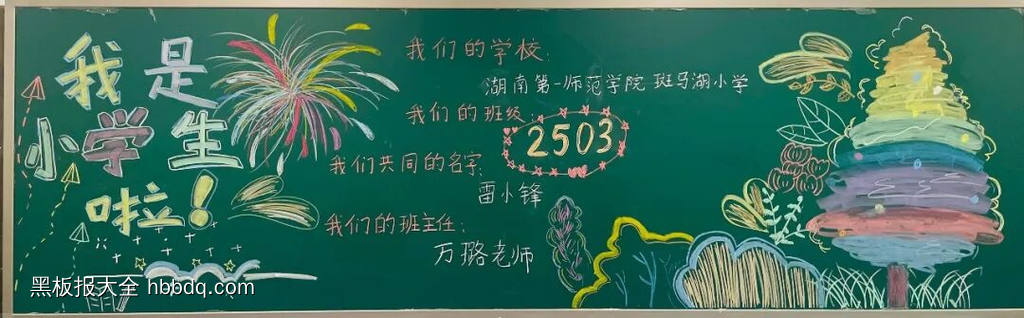 我是
小学生
啦!
我们的学校:
湖南第一师范学院斑马湖小学
我们的班级:
2503
我们共同的名字:
雷小锋
我们的班主任:
万璐老师
黑板报大全 hbbdq.com